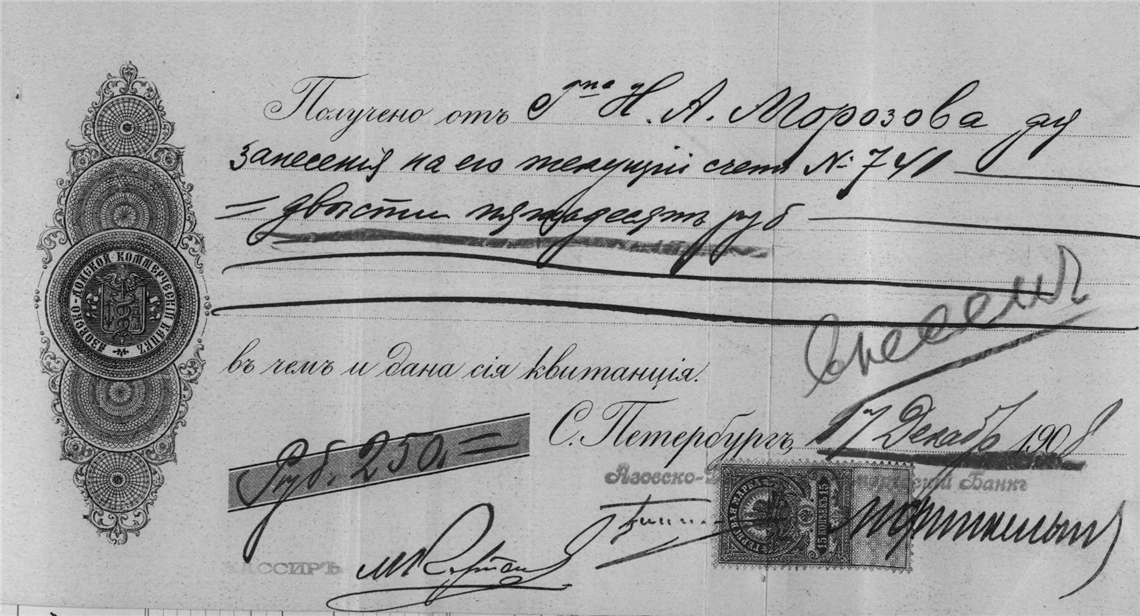 АЗОВСКО-ДОНСКОЙ КОММЕРЧЕСКІЙ БАНКЪ
Получено отъ Гна Н. А. Морозова для
занесенія на его текущій счетъ № 741
= двѣсти пятьдесятъ руб
внесены
въ чемъ и дана сія квитанція.
С. Петербургъ, 17 Декабрь 1908
Руб. 250. =
Азовско-Донской Коммерческій Банкъ
ГЕРБОВАЯ МАРКА
15 КОПѢЕКЪ 15
КАССИРЪ